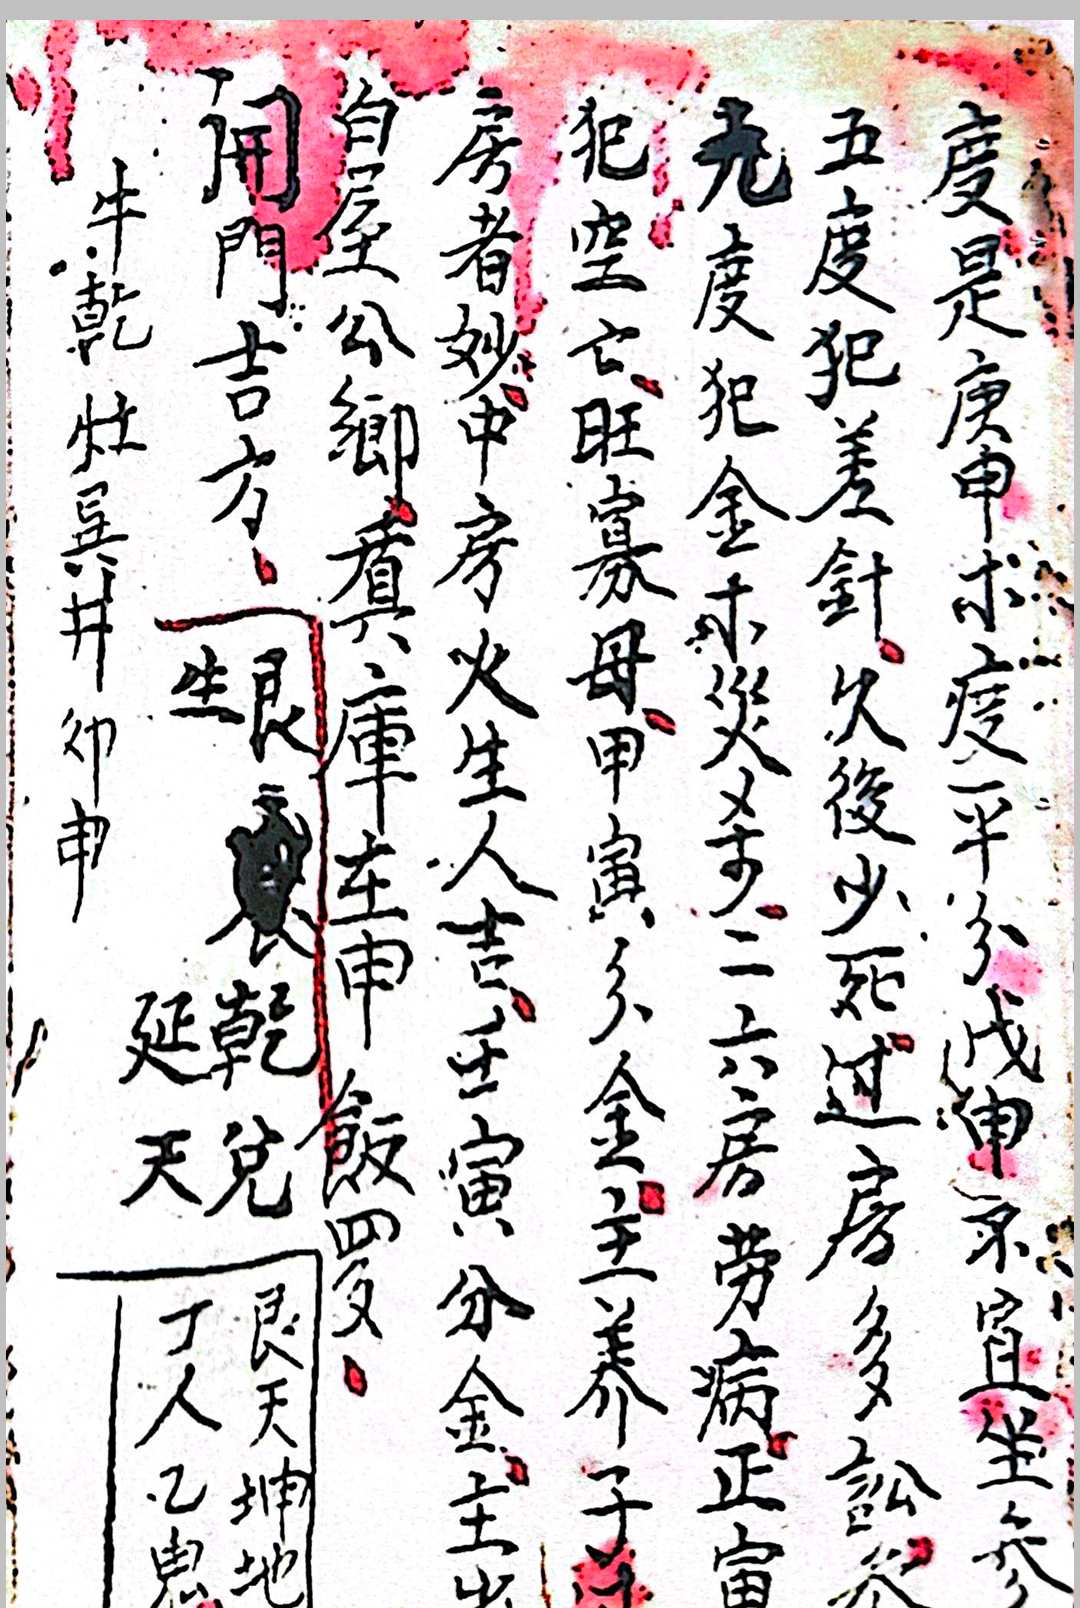 度是庚申木度平分戊申系宜坐參
五度犯差針久後少死过房多訟
九度犯金木災二六房劳病正寅
犯空亡旺寡母甲寅分金主养子
房者妙中房火生人吉壬寅分金主出
自屋公鄉真庫在申飯四多
開門吉方
艮 乾兌
生 延天
艮天坤地
丁人乙鬼
牛乾灶巽井卯申